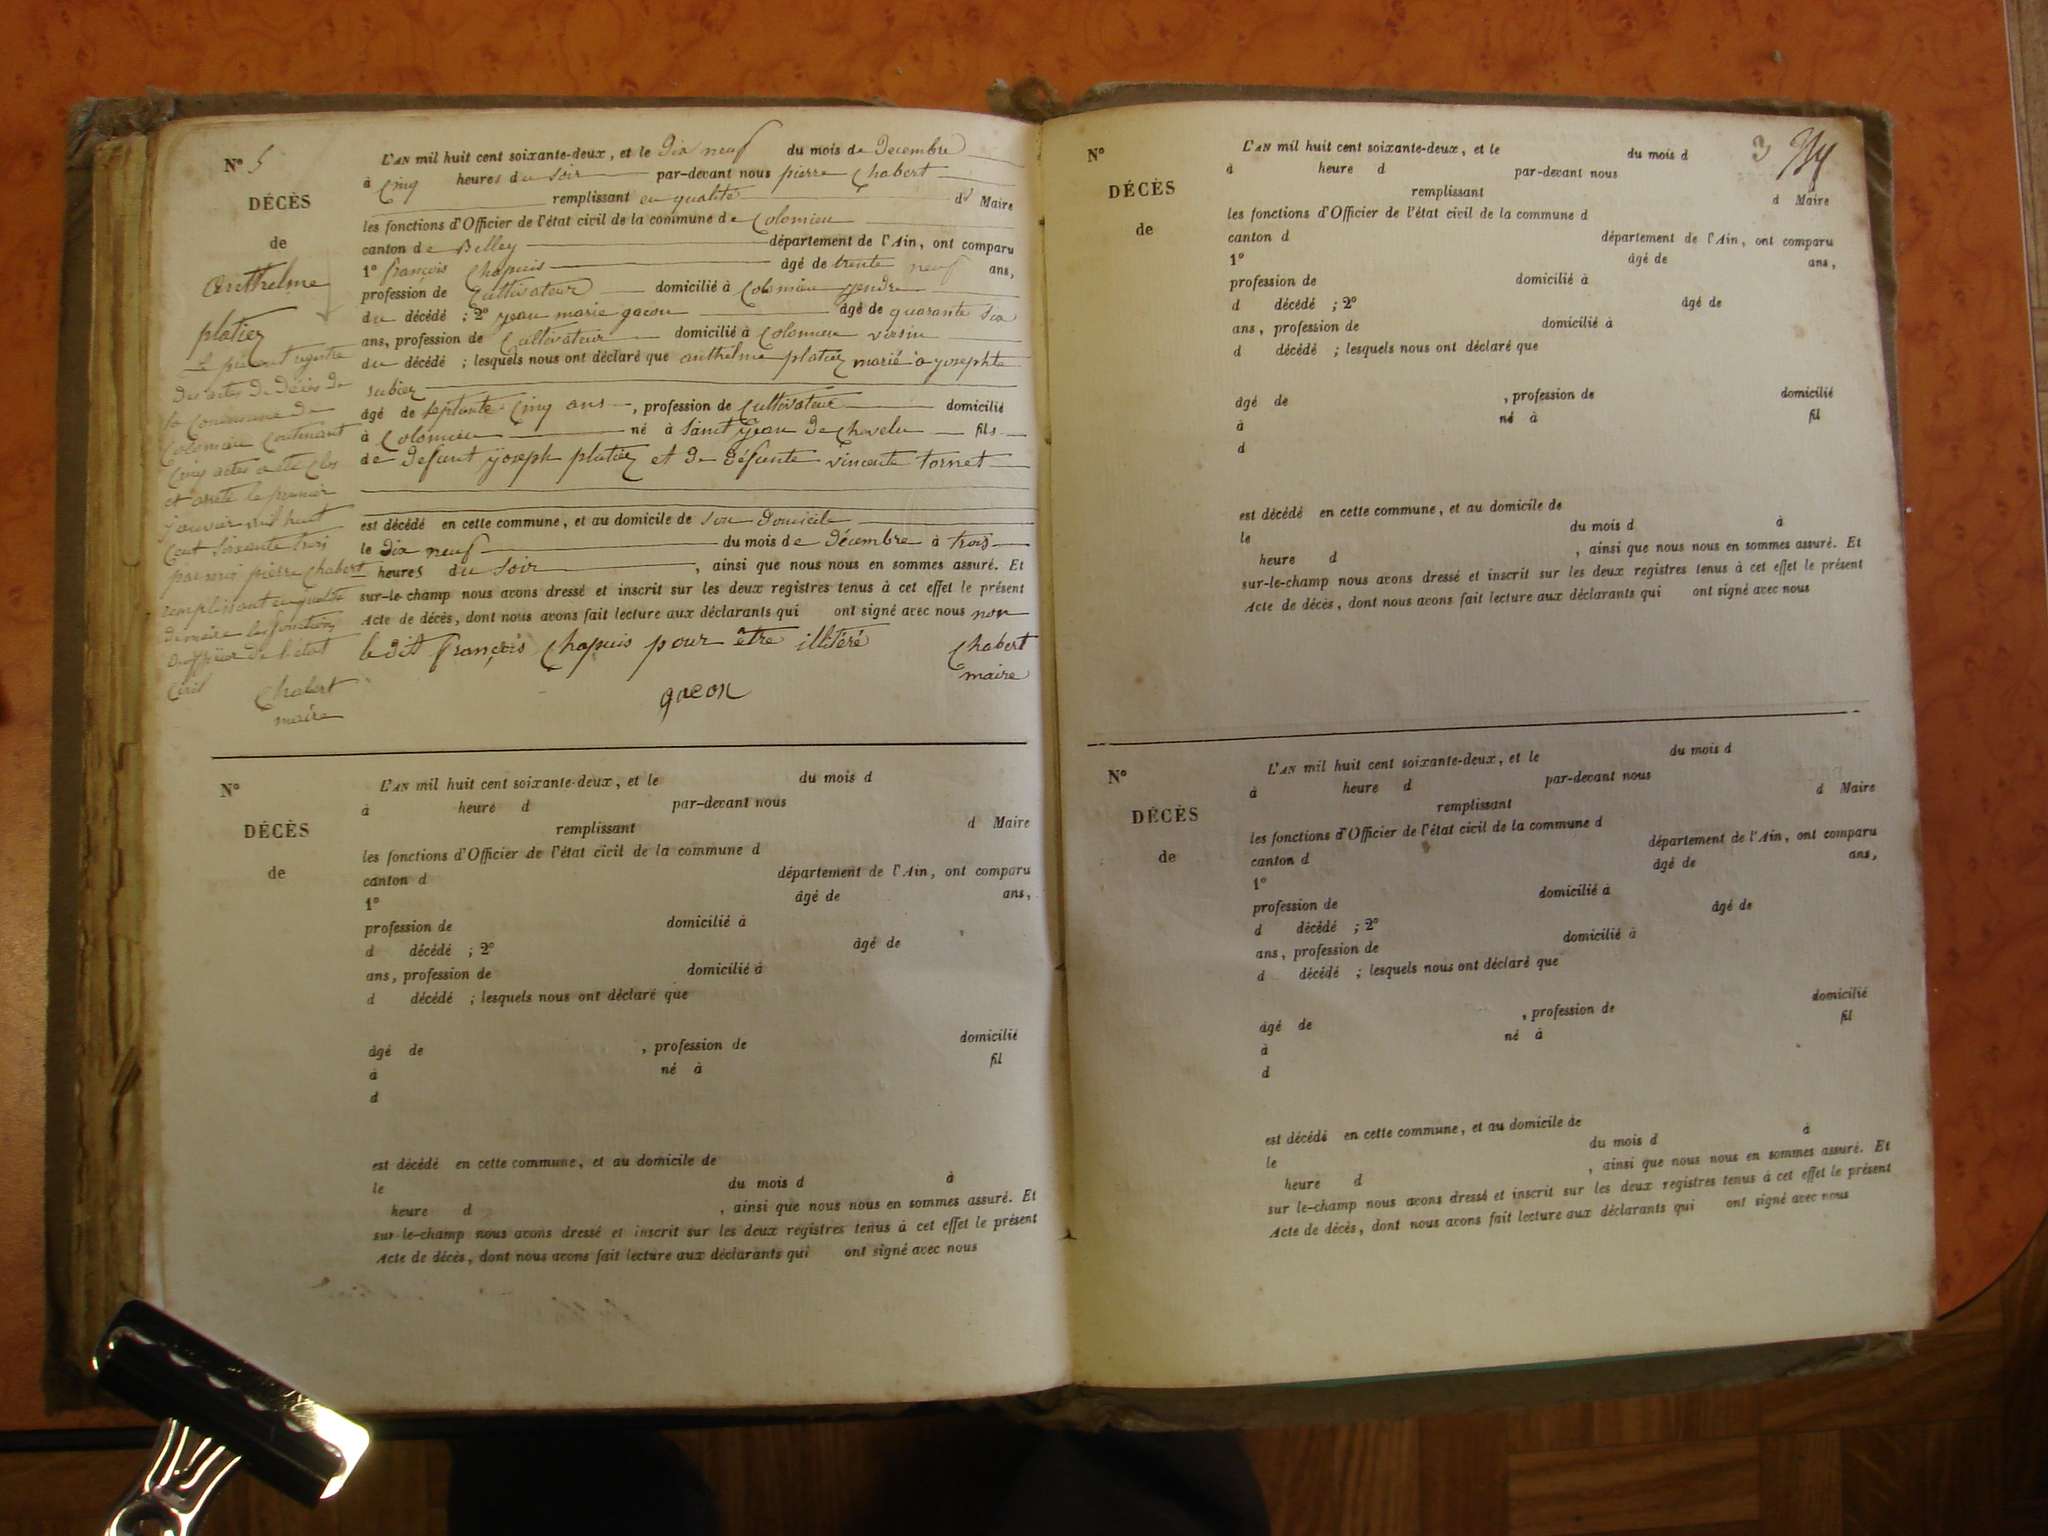 N° 5
DÉCÈS
de
Anthelme
platiez
Le présent registre
des actes de Décès de
la Commune de
Colomieu Contenant
Cinq actes a été Clos
et arrêté le premier
janvier mil huit
Cent soixante trois
par nous pierre Chabert
remplissant en qualité
de maire les fonctions
d'officier de l'état
Civil
Chabert
maire
L'AN mil huit cent soixante-deux, et le dix neuf du mois de Decembre
à Cinq heures du soir par-devant nous pierre Chabert
remplissant en qualité de Maire
les fonctions d'Officier de l'état civil de la commune de Colomieu
canton de Belley département de l'Ain, ont comparu
1° françois Chapuis âgé de trente neuf ans,
profession de Cultivateur domicilié à Colomieu gendre
du décédé ; 2° jean marie gacon âgé de quarante six
ans, profession de Cultivateur domicilié à Colomieu voisin
du décédé ; lesquels nous ont déclaré que anthelme platiez marié à josephte
subiez
âgé de septante Cinq ans, profession de Cultivateur domicilié
à Colomieu né à saint jean de Chevelu fils
de defunt joseph platiez et de défunte vincente tornet
est décédé en cette commune, et au domicile de son domicile
le dix neuf du mois de décembre à trois
heures du soir, ainsi que nous nous en sommes assuré. Et
sur-le-champ nous avons dressé et inscrit sur les deux registres tenus à cet effet le présent
Acte de décès, dont nous avons fait lecture aux déclarants qui ont signé avec nous non
le dit françois Chapuis pour être illitéré
Chabert
maire
gacon
N°
DÉCÈS
de
L'AN mil huit cent soixante-deux, et le du mois d
à heure d par-devant nous
remplissant d Maire
les fonctions d'Officier de l'état civil de la commune d
canton d département de l'Ain, ont comparu
1° âgé de ans,
profession de domicilié à
d décédé ; 2° âgé de
ans, profession de domicilié à
d décédé ; lesquels nous ont déclaré que
âgé de , profession de domicilié
à né à fil
d
est décédé en cette commune, et au domicile de
le du mois d à
heure d , ainsi que nous nous en sommes assuré. Et
sur-le-champ nous avons dressé et inscrit sur les deux registres tenus à cet effet le présent
Acte de décès, dont nous avons fait lecture aux déclarants qui ont signé avec nous
3
N°
DÉCÈS
de
L'AN mil huit cent soixante-deux, et le du mois d
à heure d par-devant nous
remplissant d Maire
les fonctions d'Officier de l'état civil de la commune d
canton d département de l'Ain, ont comparu
1° âgé de ans,
profession de domicilié à
d décédé ; 2° âgé de
ans, profession de domicilié à
d décédé ; lesquels nous ont déclaré que
âgé de , profession de domicilié
à né à fil
d
est décédé en cette commune, et au domicile de
le du mois d à
heure d , ainsi que nous nous en sommes assuré. Et
sur-le-champ nous avons dressé et inscrit sur les deux registres tenus à cet effet le présent
Acte de décès, dont nous avons fait lecture aux déclarants qui ont signé avec nous
N°
DÉCÈS
de
L'AN mil huit cent soixante-deux, et le du mois d
à heure d par-devant nous
remplissant d Maire
les fonctions d'Officier de l'état civil de la commune d
canton d département de l'Ain, ont comparu
1° âgé de ans,
profession de domicilié à
d décédé ; 2° âgé de
ans, profession de domicilié à
d décédé ; lesquels nous ont déclaré que
âgé de , profession de domicilié
à né à fil
d
est décédé en cette commune, et au domicile de
le du mois d à
heure d , ainsi que nous nous en sommes assuré. Et
sur le-champ nous avons dressé et inscrit sur les deux registres tenus à cet effet le présent
Acte de décès, dont nous avons fait lecture aux déclarants qui ont signé avec nous